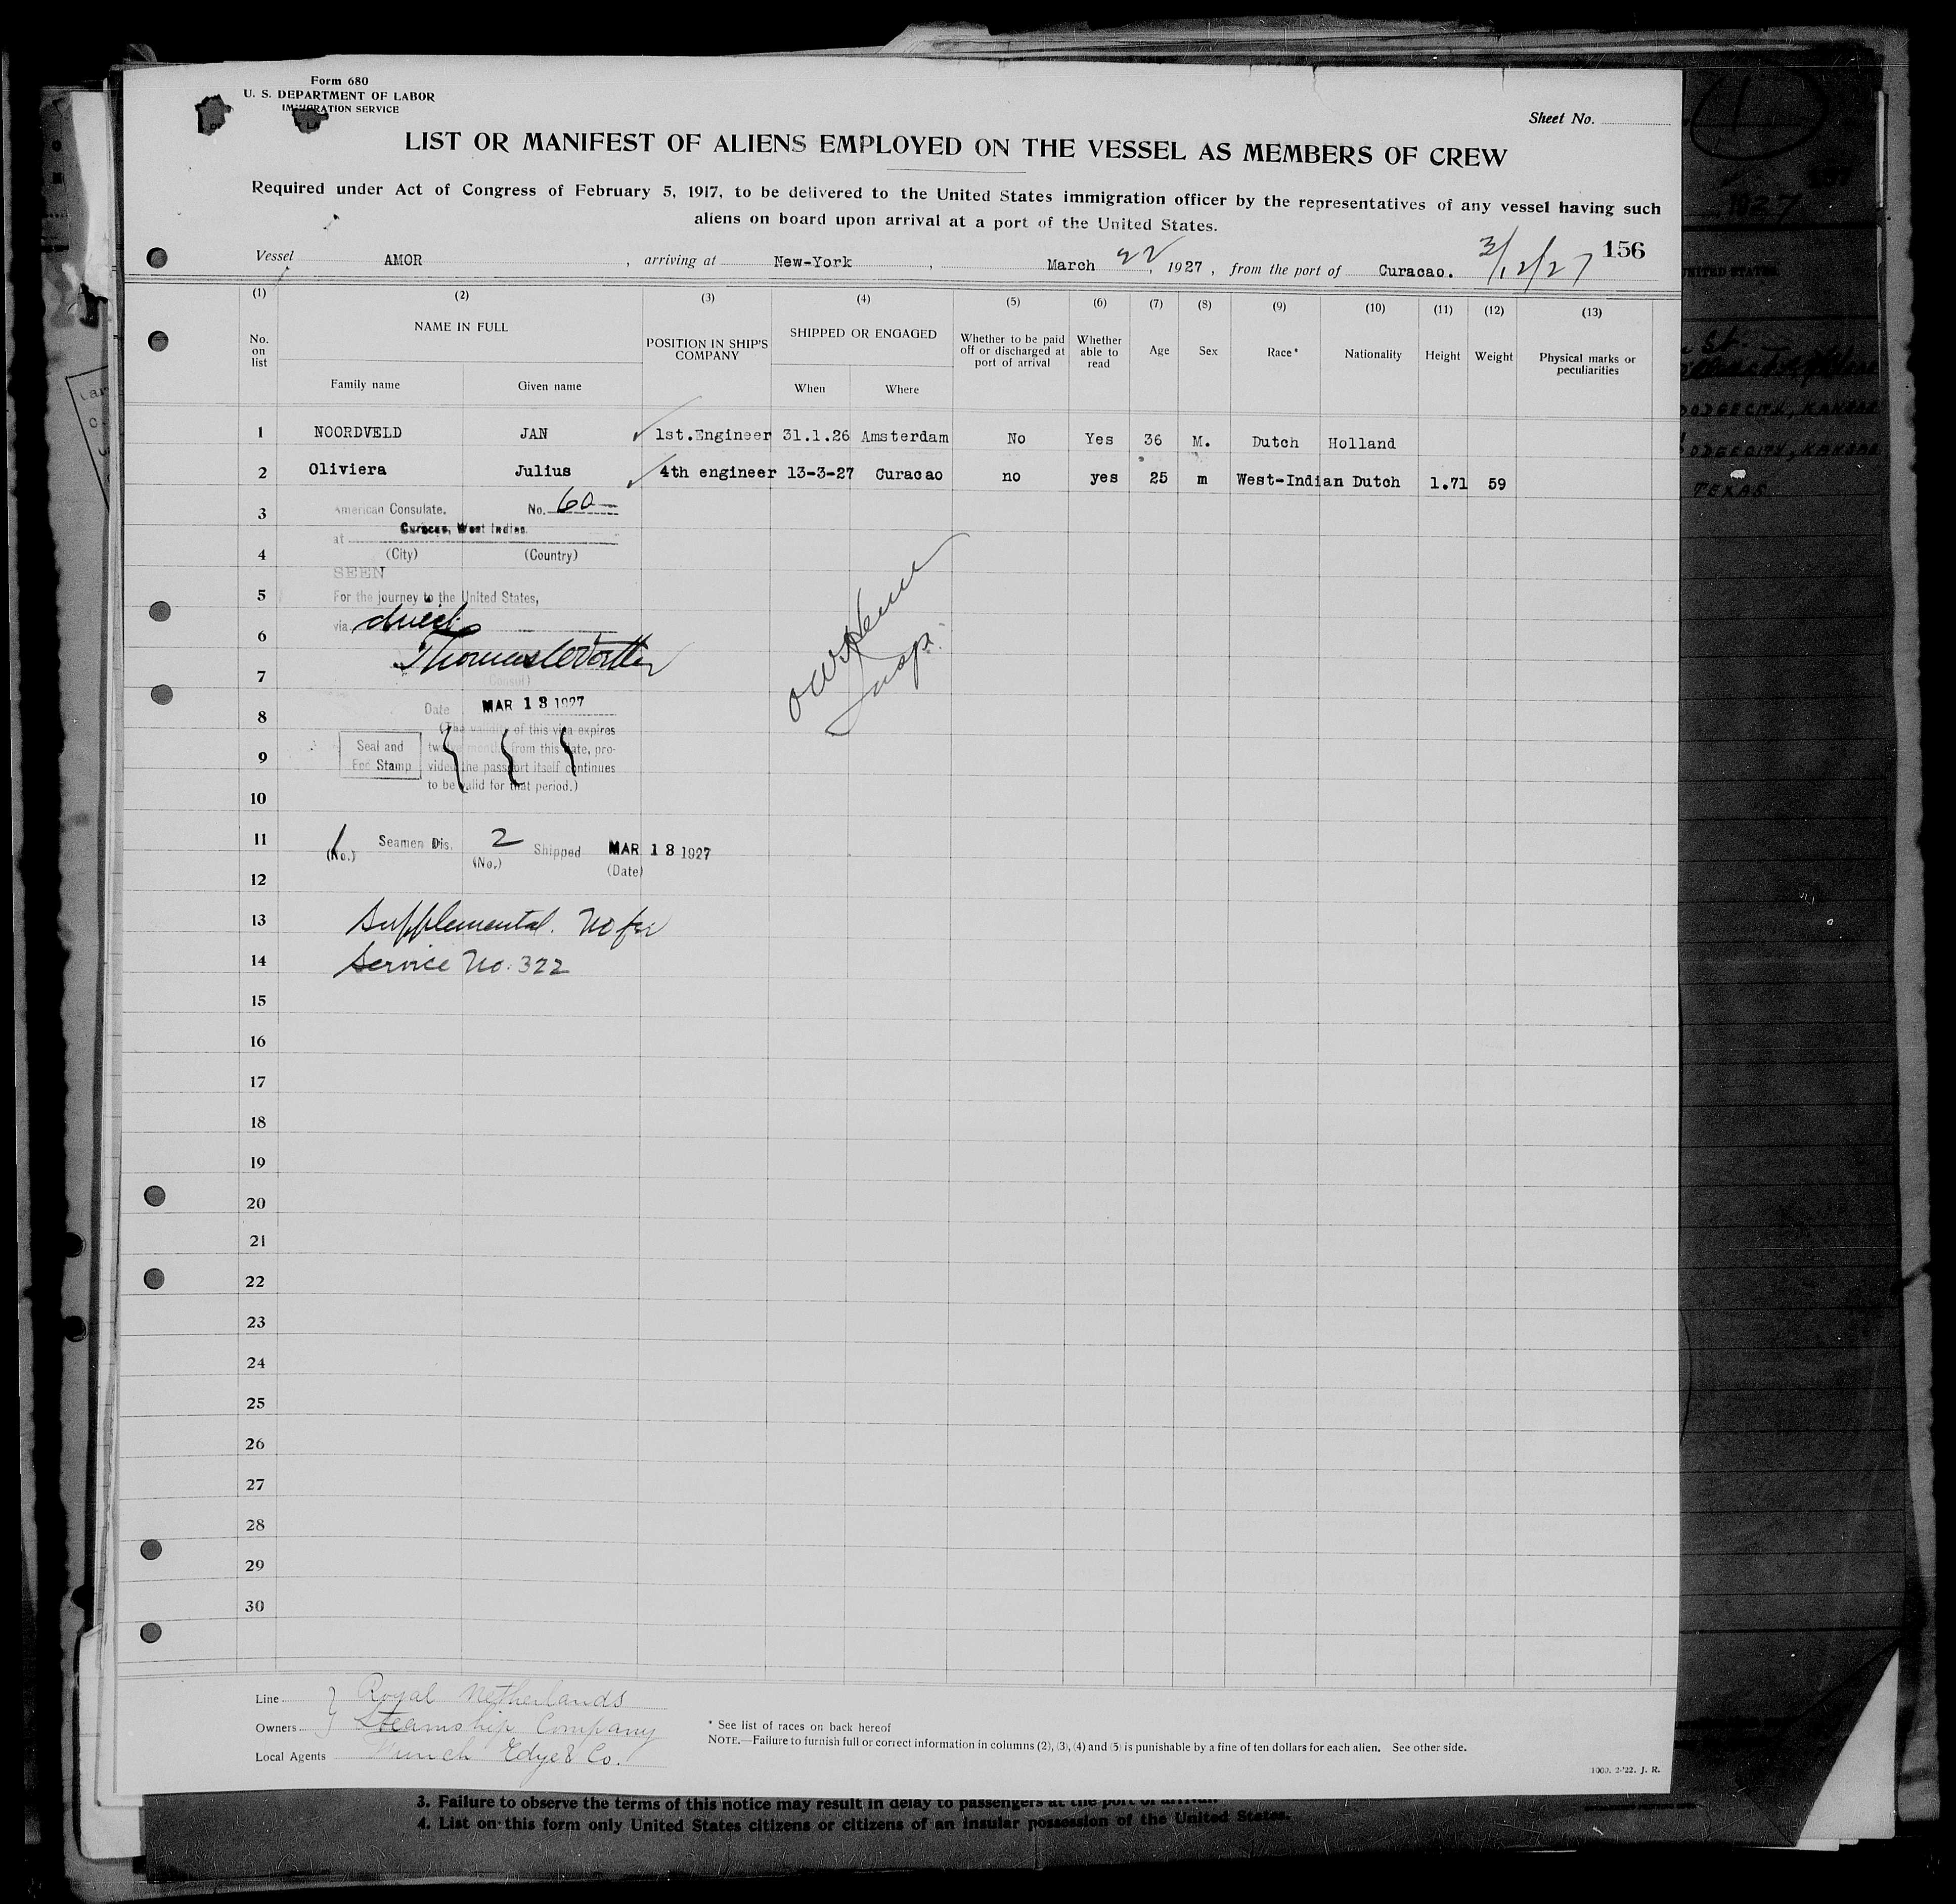 Form 680
U. S. DEPARTMENT OF LABOR
IMMIGRATION SERVICE
Sheet No.
LIST OR MANIFEST OF ALIENS EMPLOYED ON THE VESSEL AS MEMBERS OF CREW
Required under Act of Congress of February 5, 1917, to be delivered to the United States immigration officer by the representatives of any vessel having such
aliens on board upon arrival at a port of the United States.
Vessel AMOR, arriving at New-York, March 22, 1927, from the port of Curacao. 156
(1) (2) (3) (4) (5) (6) (7) (8) (9) (10) (11) (12) (13)
No. on list NAME IN FULL POSITION IN SHIP'S COMPANY SHIPPED OR ENGAGED Whether to be paid off or discharged at port of arrival Whether able to read Age Sex Race* Nationality Height Weight Physical marks or peculiarities
Family name Given name When Where
1 NOORDVELD JAN 1st.Engineer 31.1.26 Amsterdam No Yes 36 M. Dutch Holland
2 Oliviera Julius 4th engineer 13-3-27 Curacao no yes 25 m West-Indian Dutch 1.71 59
3 American Consulate. No. 60
at Curacao, West Indies.
4 (City) (Country)
SEEN
5 For the journey to the United States,
6 via direct
7 (Consul)
8 Date MAR 13 1927
(The validity of this visa expires
9 Seal and Fee Stamp twelve months from this date, pro-
vided the passport itself continues
to be valid for that period.)
10
11 1 (No.) Seamen Dis. 2 (No.) Shipped MAR 13 1927 (Date)
12
13 Supplemental. No fee
14 Service No. 322
15
16
17
18
19
20
21
22
23
24
25
26
27
28
29
30
Insp.
Line Royal Netherlands
Owners Steamship Company
Local Agents Funch Edye & Co.
* See list of races on back hereof
NOTE.—Failure to furnish full or correct information in columns (2), (3), (4) and (5) is punishable by a fine of ten dollars for each alien. See other side.
1000. 2-'22. J. R.
3. Failure to observe the terms of this notice may result in delay to passengers at the port of arrival.
4. List on this form only United States citizens or citizens of an insular possession of the United States.
1
1927
UNITED STATES
St.
DODGE CITY, KANSAS
DODGE CITY, KANSAS
TEXAS